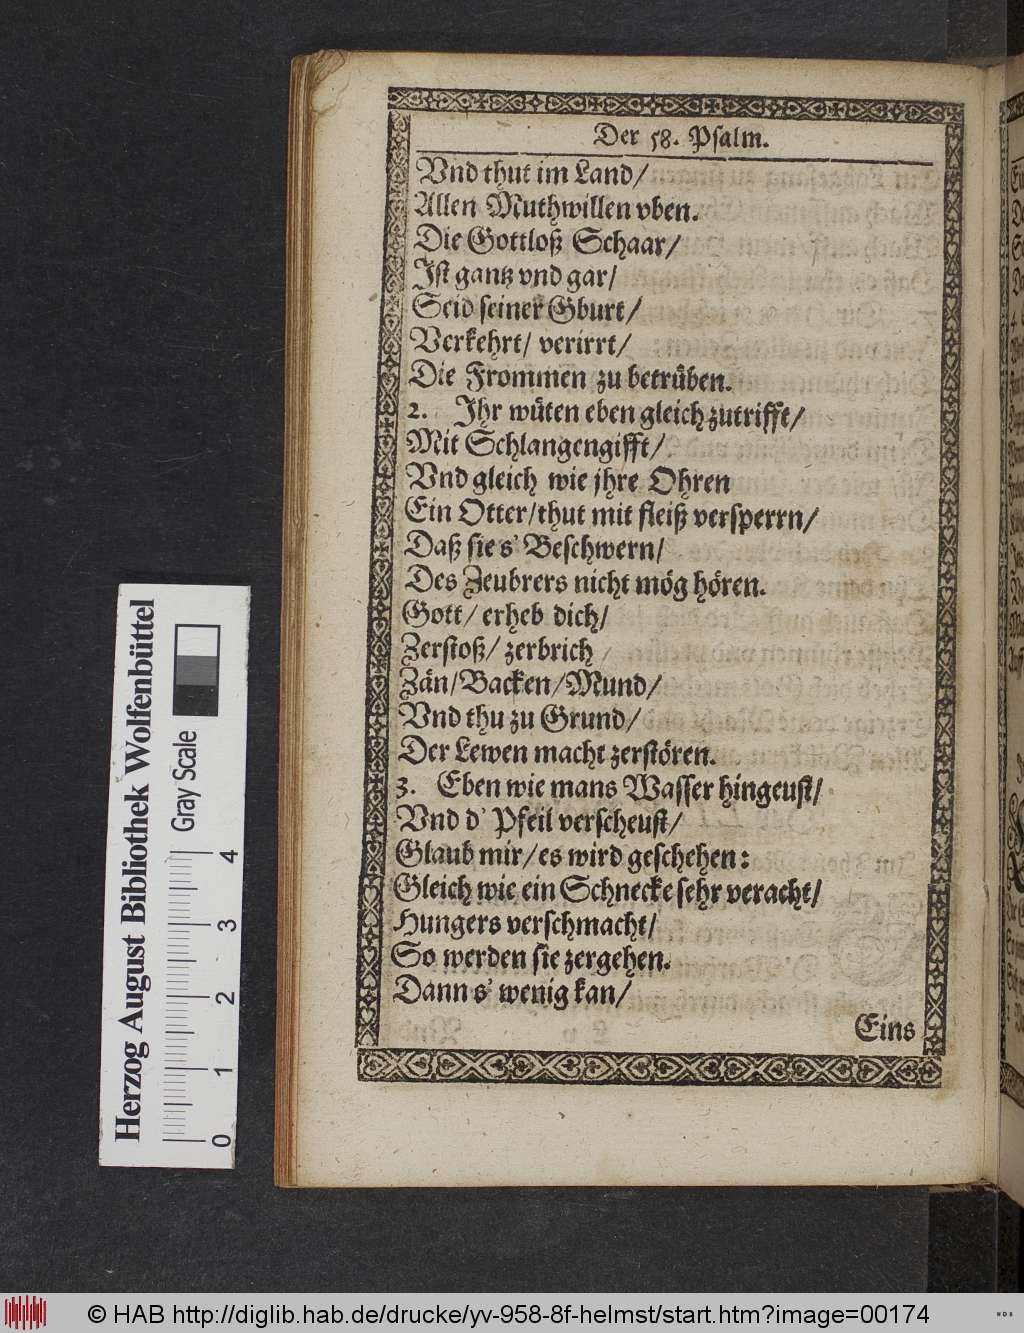 Der 58. Psalm.
Vnd thut im Land/
Allen Muthwillen vben.
Die Gottloß Schaar/
Ist gantz vnd gar/
Seid seiner Gburt/
Verkehrt/ verirrt/
Die Frommen zu betrüben.
2. Ihr wüten eben gleich zutrifft/
Mit Schlangengifft/
Vnd gleich wie jhre Ohren
Ein Otter/thut mit fleiß versperrn/
Daß sie s' Beschwern/
Des Zeubrers nicht mög hören.
Gott/ erheb dich/
Zerstoß/ zerbrich
Zän/Backen/Mund/
Vnd thu zu Grund/
Der Lewen macht zerstören.
3. Eben wie mans Wasser hingeust/
Vnd d' Pfeil verscheust/
Glaub mir/es wird geschehen:
Gleich wie ein Schnecke sehr veracht/
Hungers verschmacht/
So werden sie zergehen.
Dann s' wenig kan/
Eins
Herzog August Bibliothek Wolfenbüttel
Gray Scale
0 1 2 3 4
© HAB http://diglib.hab.de/drucke/yv-958-8f-helmst/start.htm?image=00174